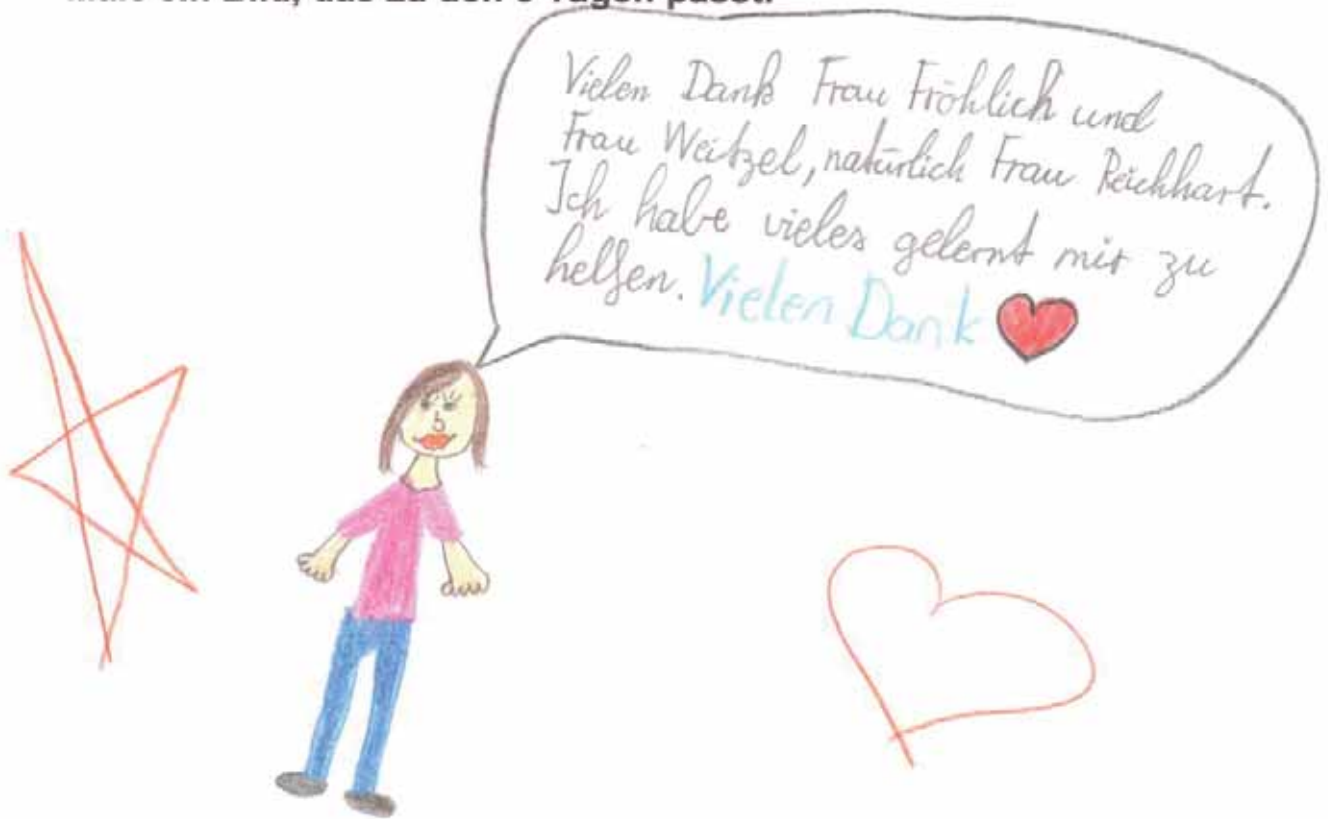 Vielen Dank Frau Fröhlich und
Frau Weitzel, natürlich Frau Reichhart.
Ich habe vieles gelernt mir zu
helfen. Vielen Dank